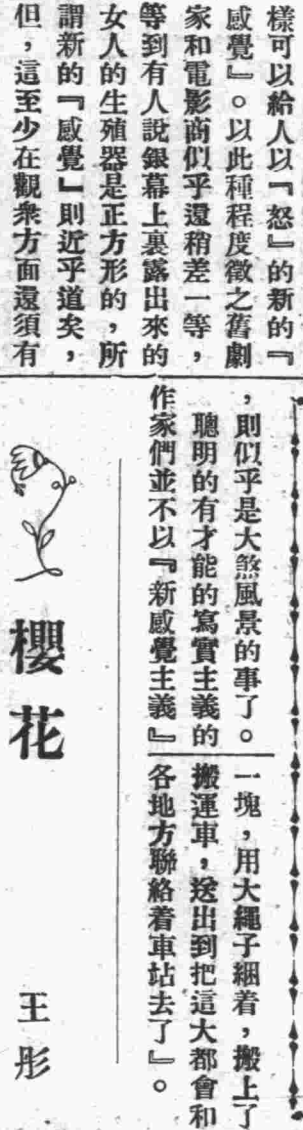 樣可以給人以『怒』的新的『
感覺』。以此種程度徵之舊劇
家和電影商似乎還稍差一等，
等到有人說銀幕上裏露出來的
女人的生殖器是正方形的，所
謂新的『感覺』則近乎道矣，
但，這至少在觀衆方面還須有
，則似乎是大煞風景的事了。
聰明的有才能的寫實主義的
作家們並不以『新感覺主義』
一塊，用大繩子綑着，搬上了
搬運車，送出到把這大都會和
各地方聯絡着車站去了』。
櫻花
王彤